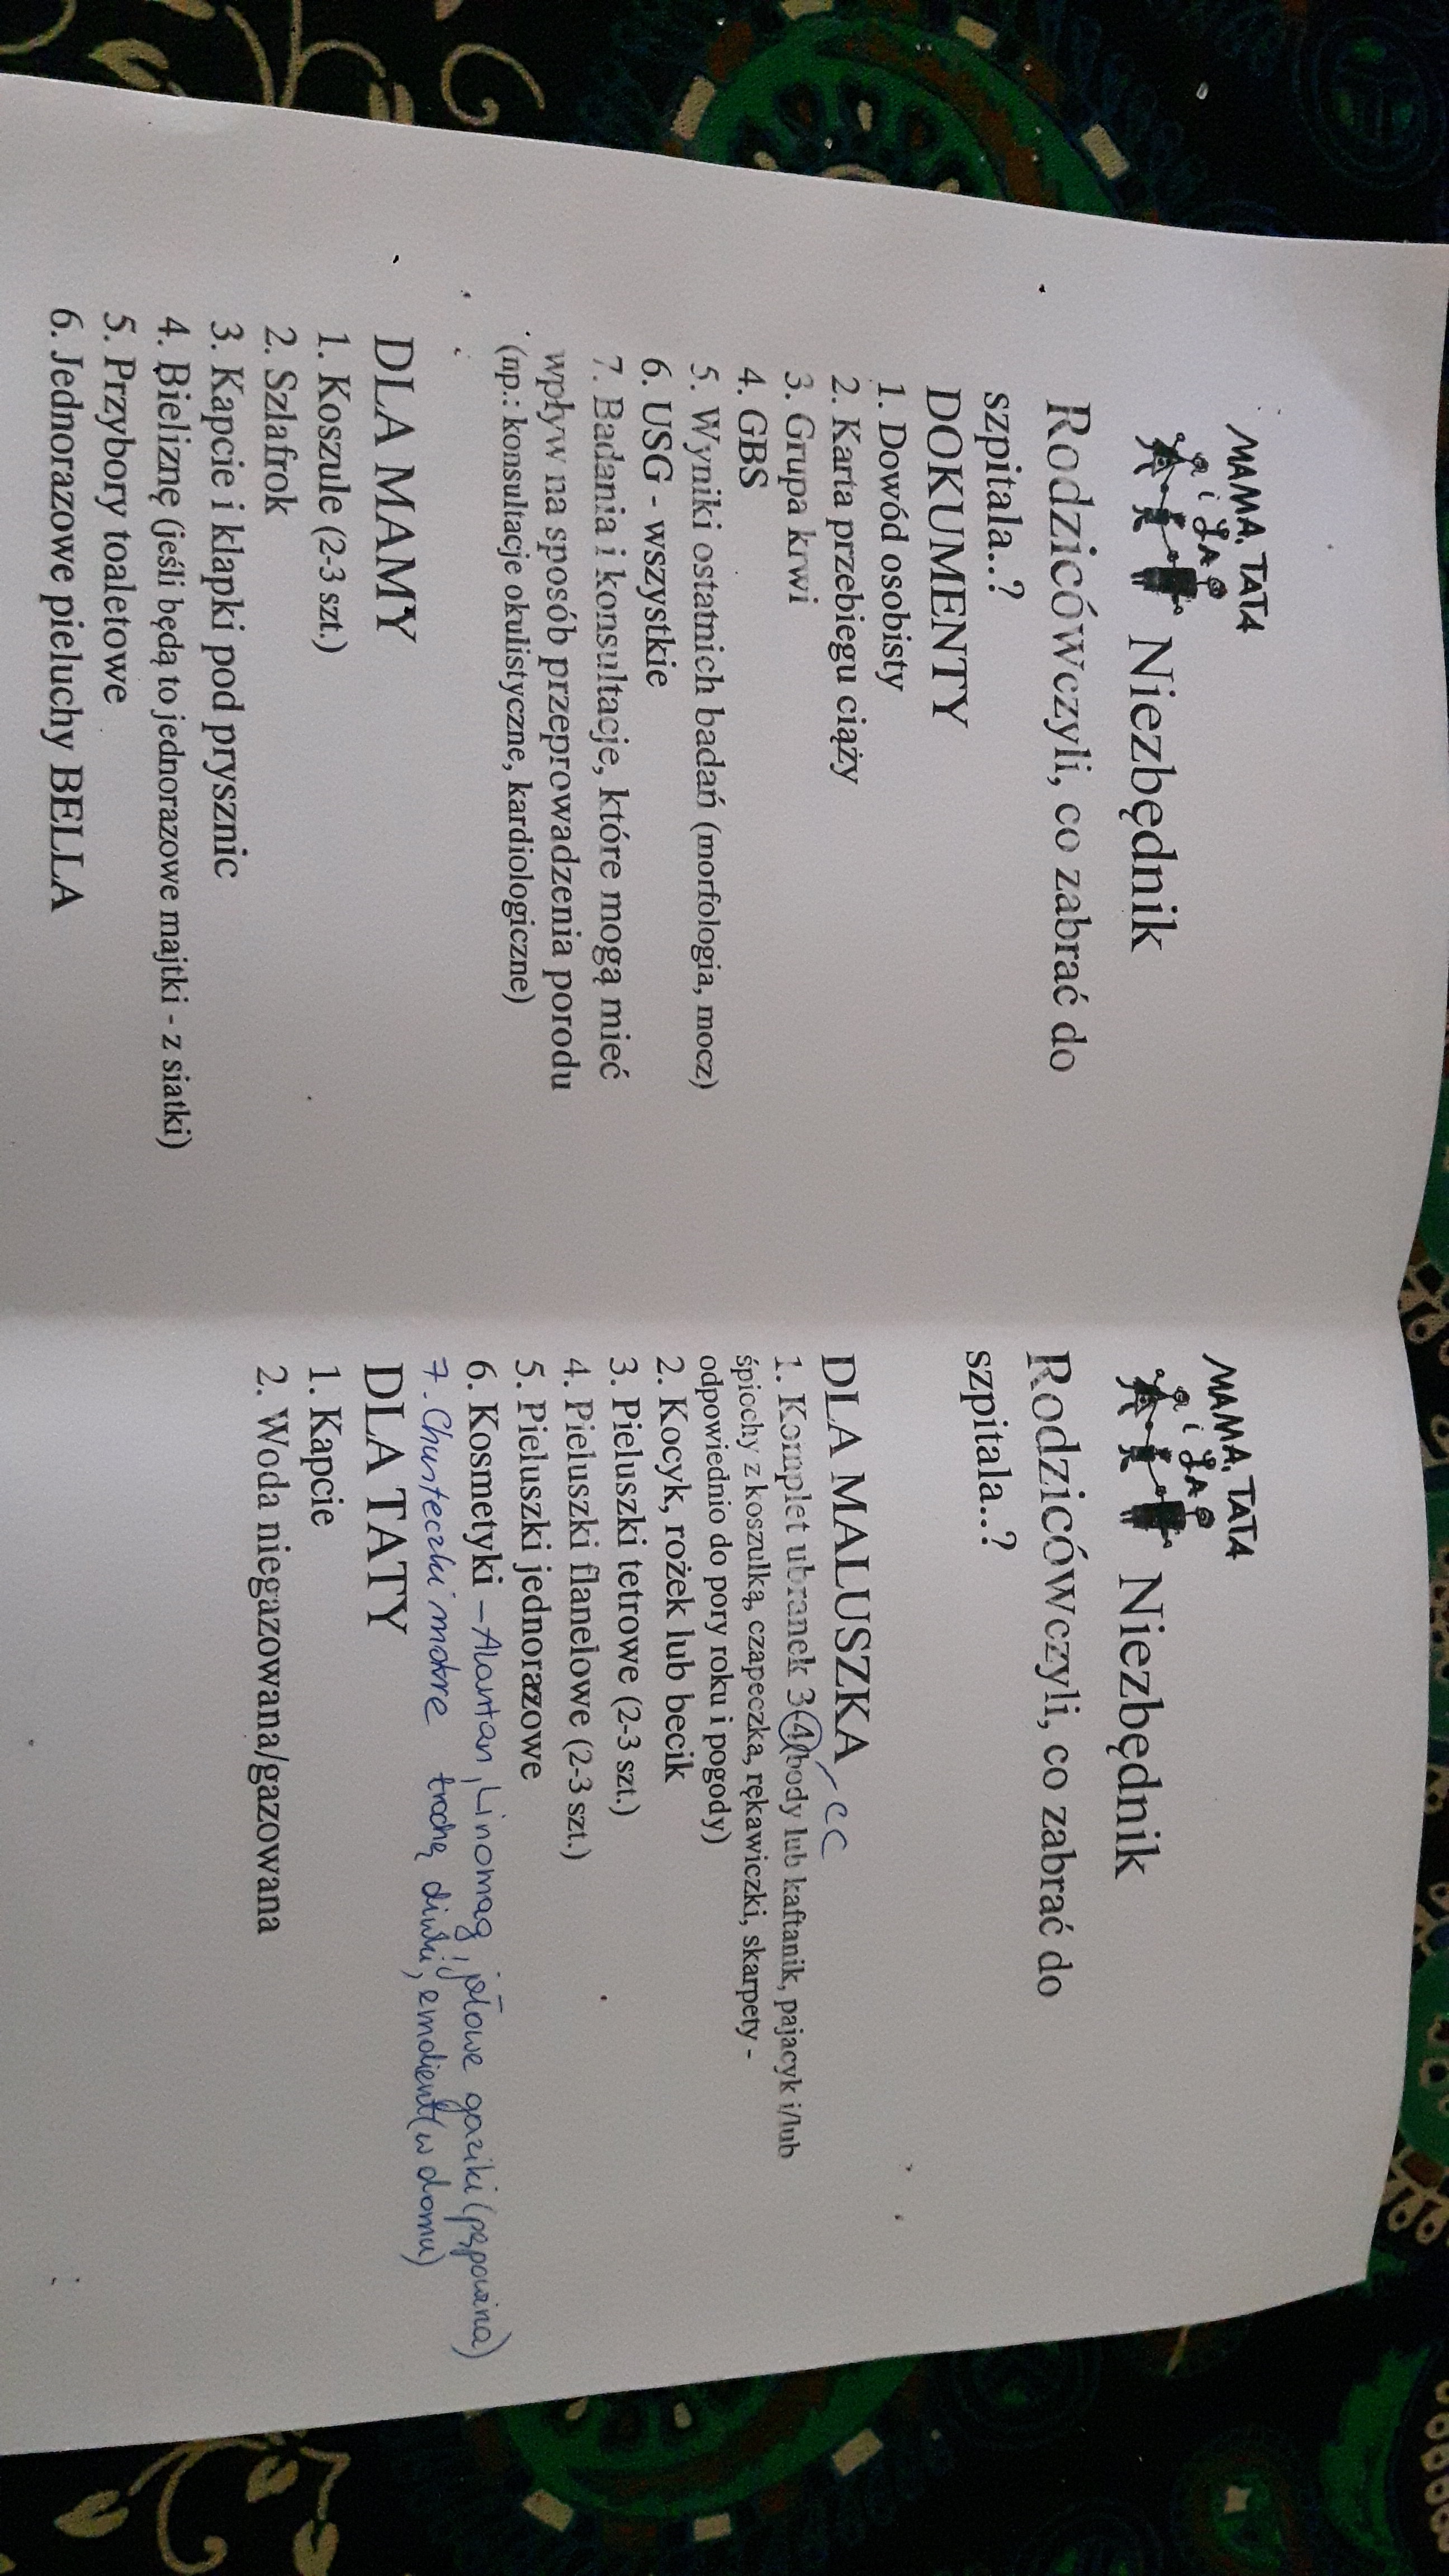 MAMA, TATA
i JA
Niezbędnik
Rodziców czyli, co zabrać do
szpitala..?
DOKUMENTY
1. Dowód osobisty
2. Karta przebiegu ciąży
3. Grupa krwi
4. GBS
5. Wyniki ostatnich badań (morfologia, mocz)
6. USG - wszystkie
7. Badania i konsultacje, które mogą mieć
wpływ na sposób przeprowadzenia porodu
(np.: konsultacje okulistyczne, kardiologiczne)
DLA MAMY
1. Koszule (2-3 szt.)
2. Szlafrok
3. Kapcie i klapki pod prysznic
4. Bieliznę (jeśli będą to jednorazowe majtki - z siatki)
5. Przybory toaletowe
6. Jednorazowe pieluchy BELLA
MAMA, TATA
i JA
Niezbędnik
Rodziców czyli, co zabrać do
szpitala..?
DLA MALUSZKA
cc
1. Komplet ubranek 3(4)(body lub kaftanik, pajacyk i/lub
śpiochy z koszulką, czapeczka, rękawiczki, skarpety -
odpowiednio do pory roku i pogody)
2. Kocyk, rożek lub becik
3. Pieluszki tetrowe (2-3 szt.)
4. Pieluszki flanelowe (2-3 szt.)
5. Pieluszki jednorazowe
6. Kosmetyki – Alantan, Linomag, jałowe gaziki (pępowina)
7. Chusteczki mokre trochę emolient (w domu)
DLA TATY
1. Kapcie
2. Woda niegazowana/gazowana